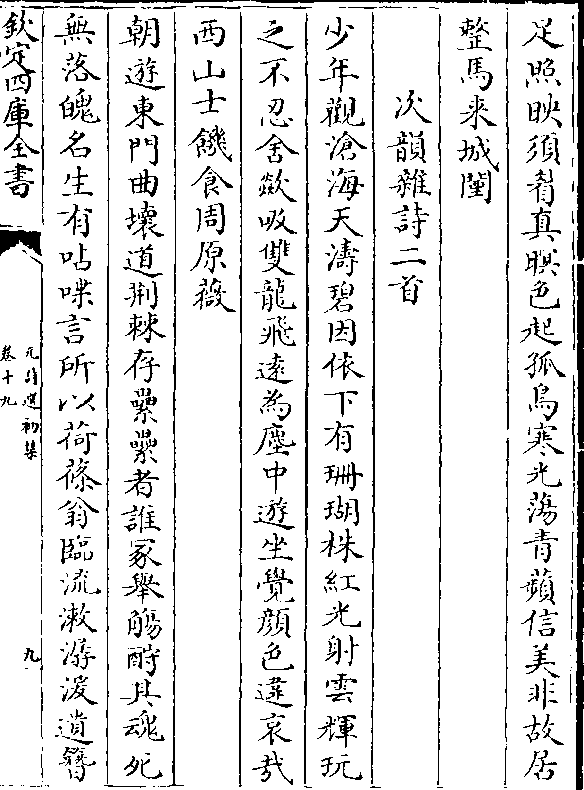 足照映須眉真暝色起孤鳥寒光蕩青蘋信美非故居
整馬来城闉
次韻雜詩二首
少年觀滄海天濤碧因依下有珊瑚株紅光射雲輝玩
之不忍舍歘吸雙龍飛逺為塵中遊坐覺顔色違哀哉
西山士饑食周原薇
朝遊東門曲壞道荆棘存纍纍者誰冢舉觴酹其魂死
無落魄名生有呫嗫言所以荷蓧翁臨流漱潺湲遺簪
欽定四庫全書
元詩選初集
卷十九
九